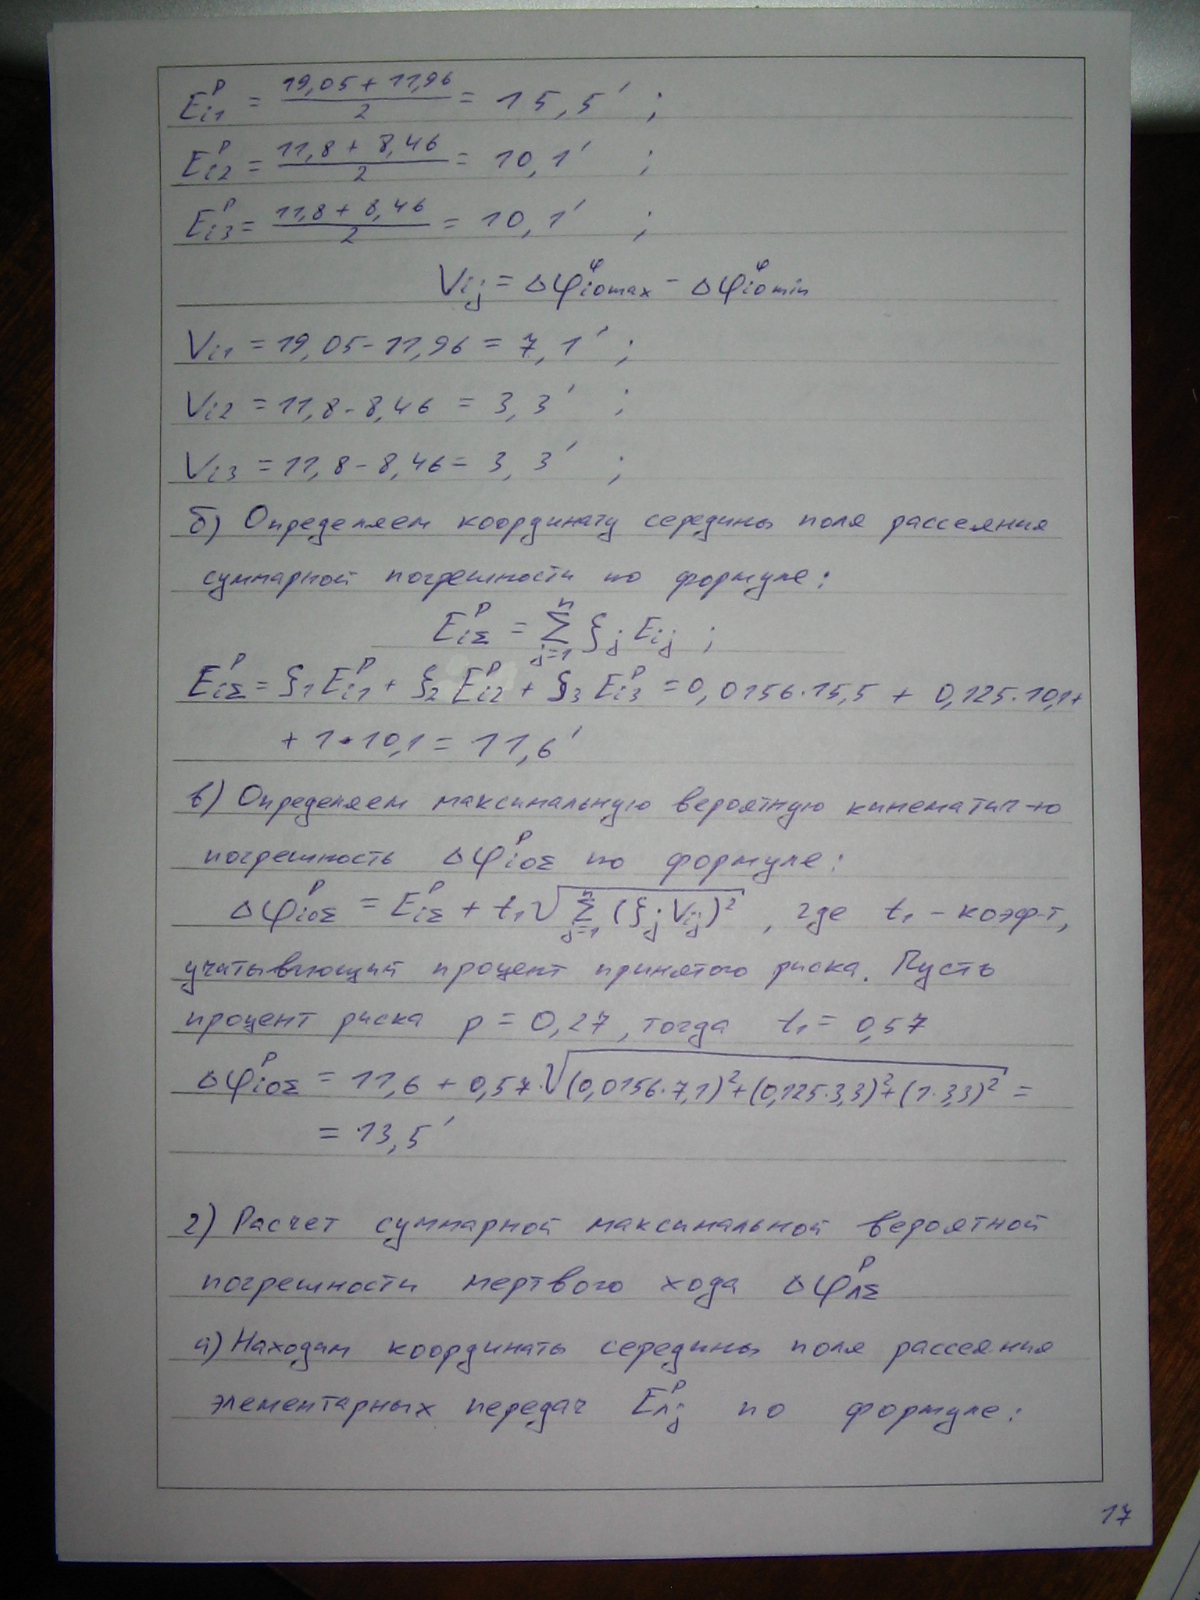 E^P_i1 = (19,05 + 11,96)/2 = 15,5′ ;
E^P_i2 = (11,8 + 8,46)/2 = 10,1′ ;
E^P_i3 = (11,8 + 8,46)/2 = 10,1′ ;
V_ij = Δφ^φ_iomax - Δφ^φ_iomin
V_i1 = 19,05 - 11,96 = 7,1′ ;
V_i2 = 11,8 - 8,46 = 3,3′ ;
V_i3 = 11,8 - 8,46 = 3,3′ ;
б) Определяем координату середины поля рассеяния
суммарной погрешности по формуле:
E^P_iΣ = Σ^n_j=1 ξ_j E_ij ;
E^P_iΣ = ξ_1 E^P_i1 + ξ_2 E^P_i2 + ξ_3 E^P_i3 = 0,0156·15,5 + 0,125·10,1+
+ 1·10,1 = 11,6′
в) Определяем максимальную вероятную кинематич-ю
погрешность Δφ^P_ioΣ по формуле:
Δφ^P_ioΣ = E^P_iΣ + t_1 √(Σ^n_j=1 (ξ_j V_ij)²) , где t_1 - коэф-т,
учитывающий процент принятого риска. Пусть
процент риска p = 0,27, тогда t_1 = 0,57
Δφ^P_ioΣ = 11,6 + 0,57·√((0,0156·7,1)²+(0,125·3,3)²+(1·3,3)²) =
= 13,5′
2) Расчет суммарной максимальной вероятной
погрешности мертвого хода Δφ^P_лΣ
а) Находим координаты середины поля рассеяния
элементарных передач E^P_лj по формуле:
17